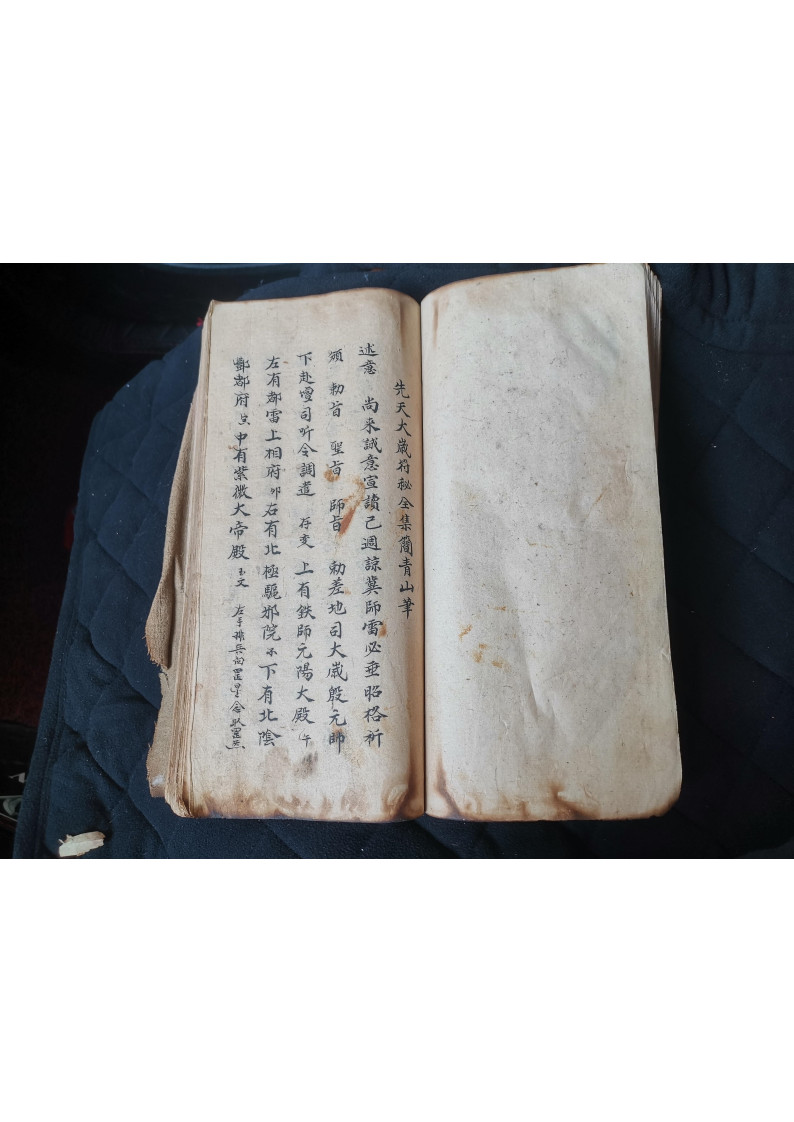 先天大歲符秘全集蕳青山筆
述意　尚来誠意宣讀已週諒冀師雷必垂昭格祈
頒　勅旨　聖旨　師旨　勅差地司大歲殷元帥
下赴壇司听令調遣　存变　上有鉄師元陽大殿午
左有都雷上相府卯右有北極驅邪院　下有北陰
酆都府　中有紫微大帝殿玉文　左手　罡